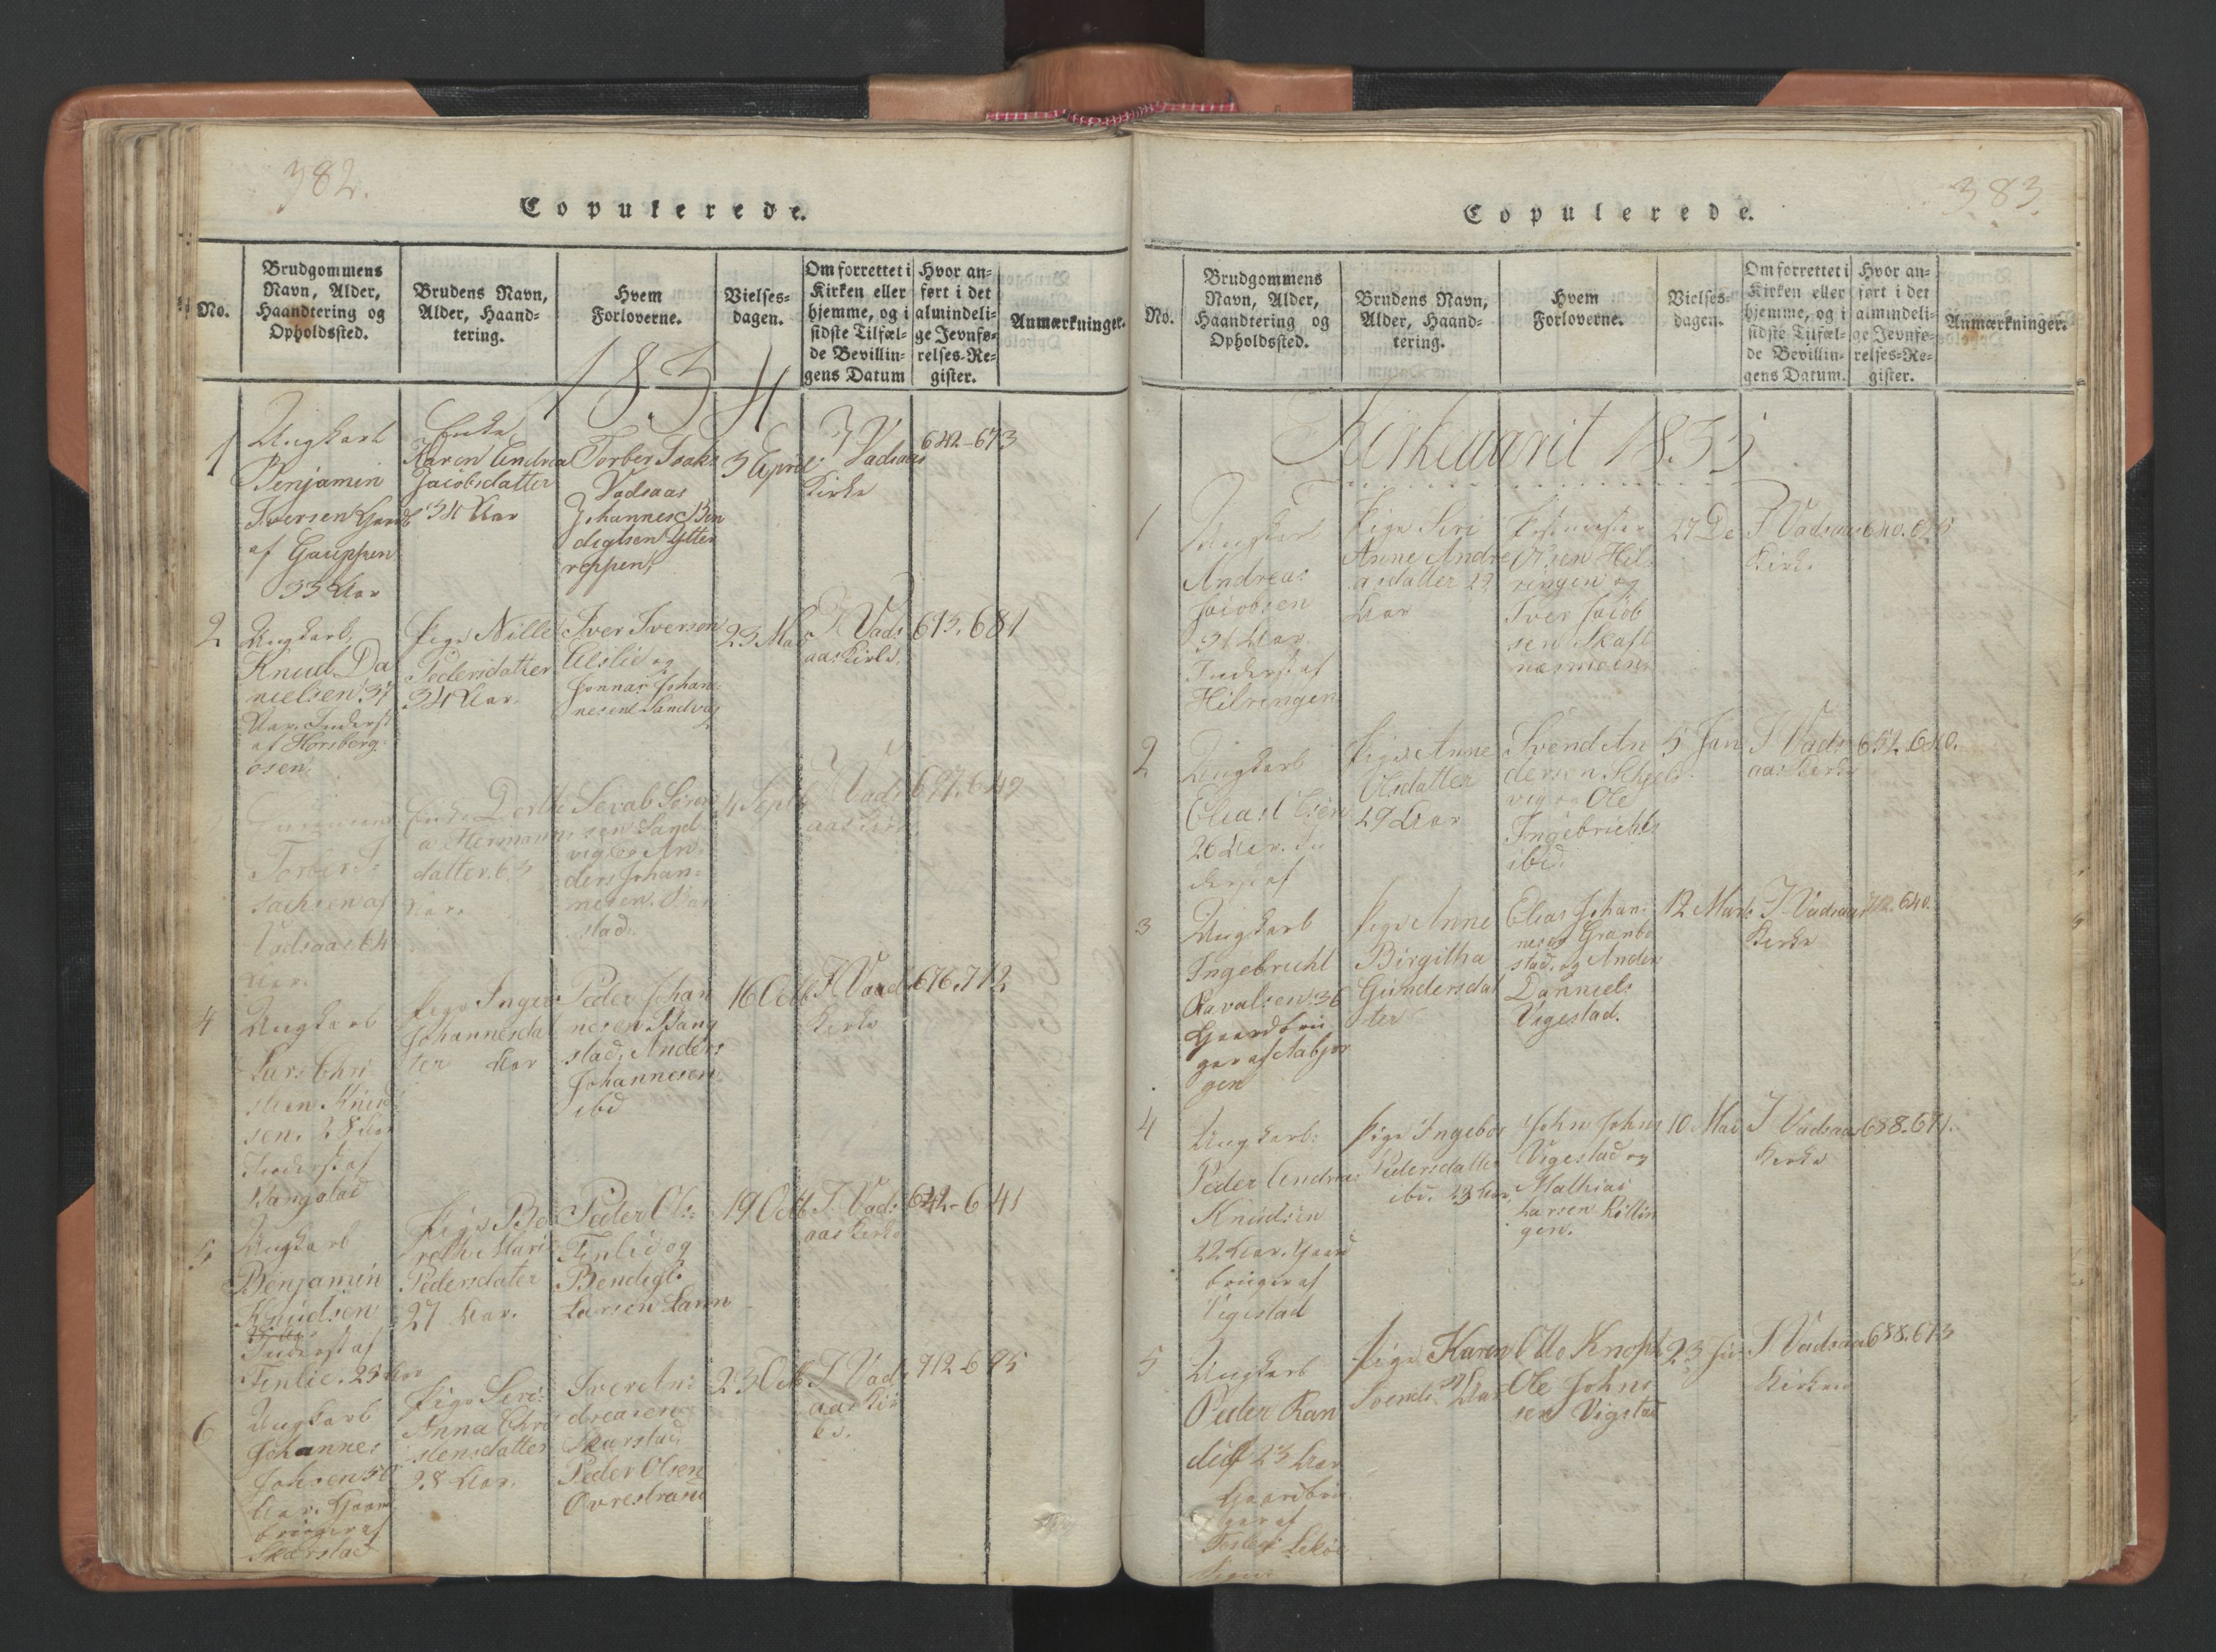 382.
Copulerede.
No.
Brudgommens
Navn, Alder,
Haandtering og
Opholdssted.
Brudens Navn,
Alder, Haand-
tering.
Hvem
Forloverne.
Vielses-
dagen.
Om forrettet i
Kirken eller
hjemme, og i
sidste Tilfæl-
de Bevillin-
gens Datum
Hvor an-
ført i det
almindeli-
ge Jevnfø-
relses-Re-
gister.
Anmærkninger.
1834
1
Ungkarl
Benjamin
Iversen
af Gaupen
33 Aar
Enke
Karen Andrea
Jacobsdatter
34 Aar
Torber Isaks
Vadsaas
Johannes Ben
digtsen Ytter
reppen
3 April
I Vadsaas
Kirke
642-673
2
Ungkarl
Knud Da
nielsen 37
Aar. Inderst
af Horsberg
osen
Pige Nille
Pedersdatter
34 Aar.
Iver Iversen
Aslid og
Jonnas Johan
nesen Sandvig
23 Mai
I Vads
aas Kirke
613.681
Torber I
sachsen af
Vadsaas 64
Aar.
Enke Dorthe
a Hermans
datter 63
Aar.
Sevald Søren
sen Sand
vig og An
ders Johan
nesen
stad.
4 Septb
I Vads
aas Kirke
697.649
4
Ungkarl
Lars Chri
stian Knud
sen. 28 Aar
Inderst af
Vangstad
Pige Inger
Johannesdat
ter Aar
Peder Johan
nesen Vang
stad, Anders
Johannesen
ibd
16 Octb
I Vads
Kirke
676.712
5
Ungkarl
Benjamin
Knudsen
Inderst af
Finlie. 25 Aar
Pige Be
reth Marie
Pedersdater
27 Aar.
Peder Ols
Finlid og
Bendigt
Larsen Lann
19 Octb
I Vads
aas Kirke
642-641
6
Ungkarl
Johannes
Johsen 30
Aar. Gaard
bruger af
Skarstad
Pige Seri
Anna Chri
stensdatter
28 Aar.
Iver An
dreasen
Skarstad
Peder Olsen
Øvrestrand
23 Octb
I Vads
aas Kir
ke.
712-695
383.
Copulerede.
No.
Brudgommens
Navn, Alder,
Haandtering og
Opholdssted.
Brudens Navn,
Alder, Haand-
tering.
Hvem
Forloverne.
Vielses-
dagen.
Om forrettet i
Kirken eller
hjemme, og i
sidste Tilfæl-
de Bevillin-
gens Datum.
Hvor an-
ført i det
almindeli-
ge Jevnfø-
relses-Re-
gister.
Anmærkninger.
Kirkeaaret 1835
1
Ungkarl
Andreas
Jacobsen
31 Aar
Inderst af
Hilringen
Pige Seri
Anne Andre
asdatter 29
Aar
Olsen Hil
ringen og
Iver Jacob
sen Skaft
næsmoen
27 De
I Vadsaas
Kirke
640.
2
Ungkarl
Elias Olsen
26 Aar. In
derst af
Pige Anne
Olsdatter
29 Aar
Svend An
dersen Schjels
vig og Ole
Ingebrichts
ibid.
5 Jan
I Vads
aas Kirke
652.640.
3
Ungkarl
Ingebricht
Pavalsen 36
Gaardbru
ger af Aabjør
gen
Pige Anne
Birgitha
Gundersdat
ter
Elias Johan
nesen Granbo
stad, og Anders
Daniels
Vigestad.
12 Marts
I Vadsaas
Kirke
712.640.
4
Ungkarl
Peder Andrea
Knudsen
22 Aar. Gaard
bruger af
Vigestad
Pige Ingebor
Pedersdatter
ibd. 23 Aar,
John Johns
Vigestad og
Mathias
Larsen Killin
gen.
10 Mai
I Vadsaas
Kirke
688.671.
5
Ungkarl
Peder Ran
dulf 23 Aar
Gaardbru
ger af
Pige Karen
Svends Aar
Otto Knoph
Ole Johns
sen Vigstad
23 Ju
I Vadsaa
Kirken
688.673